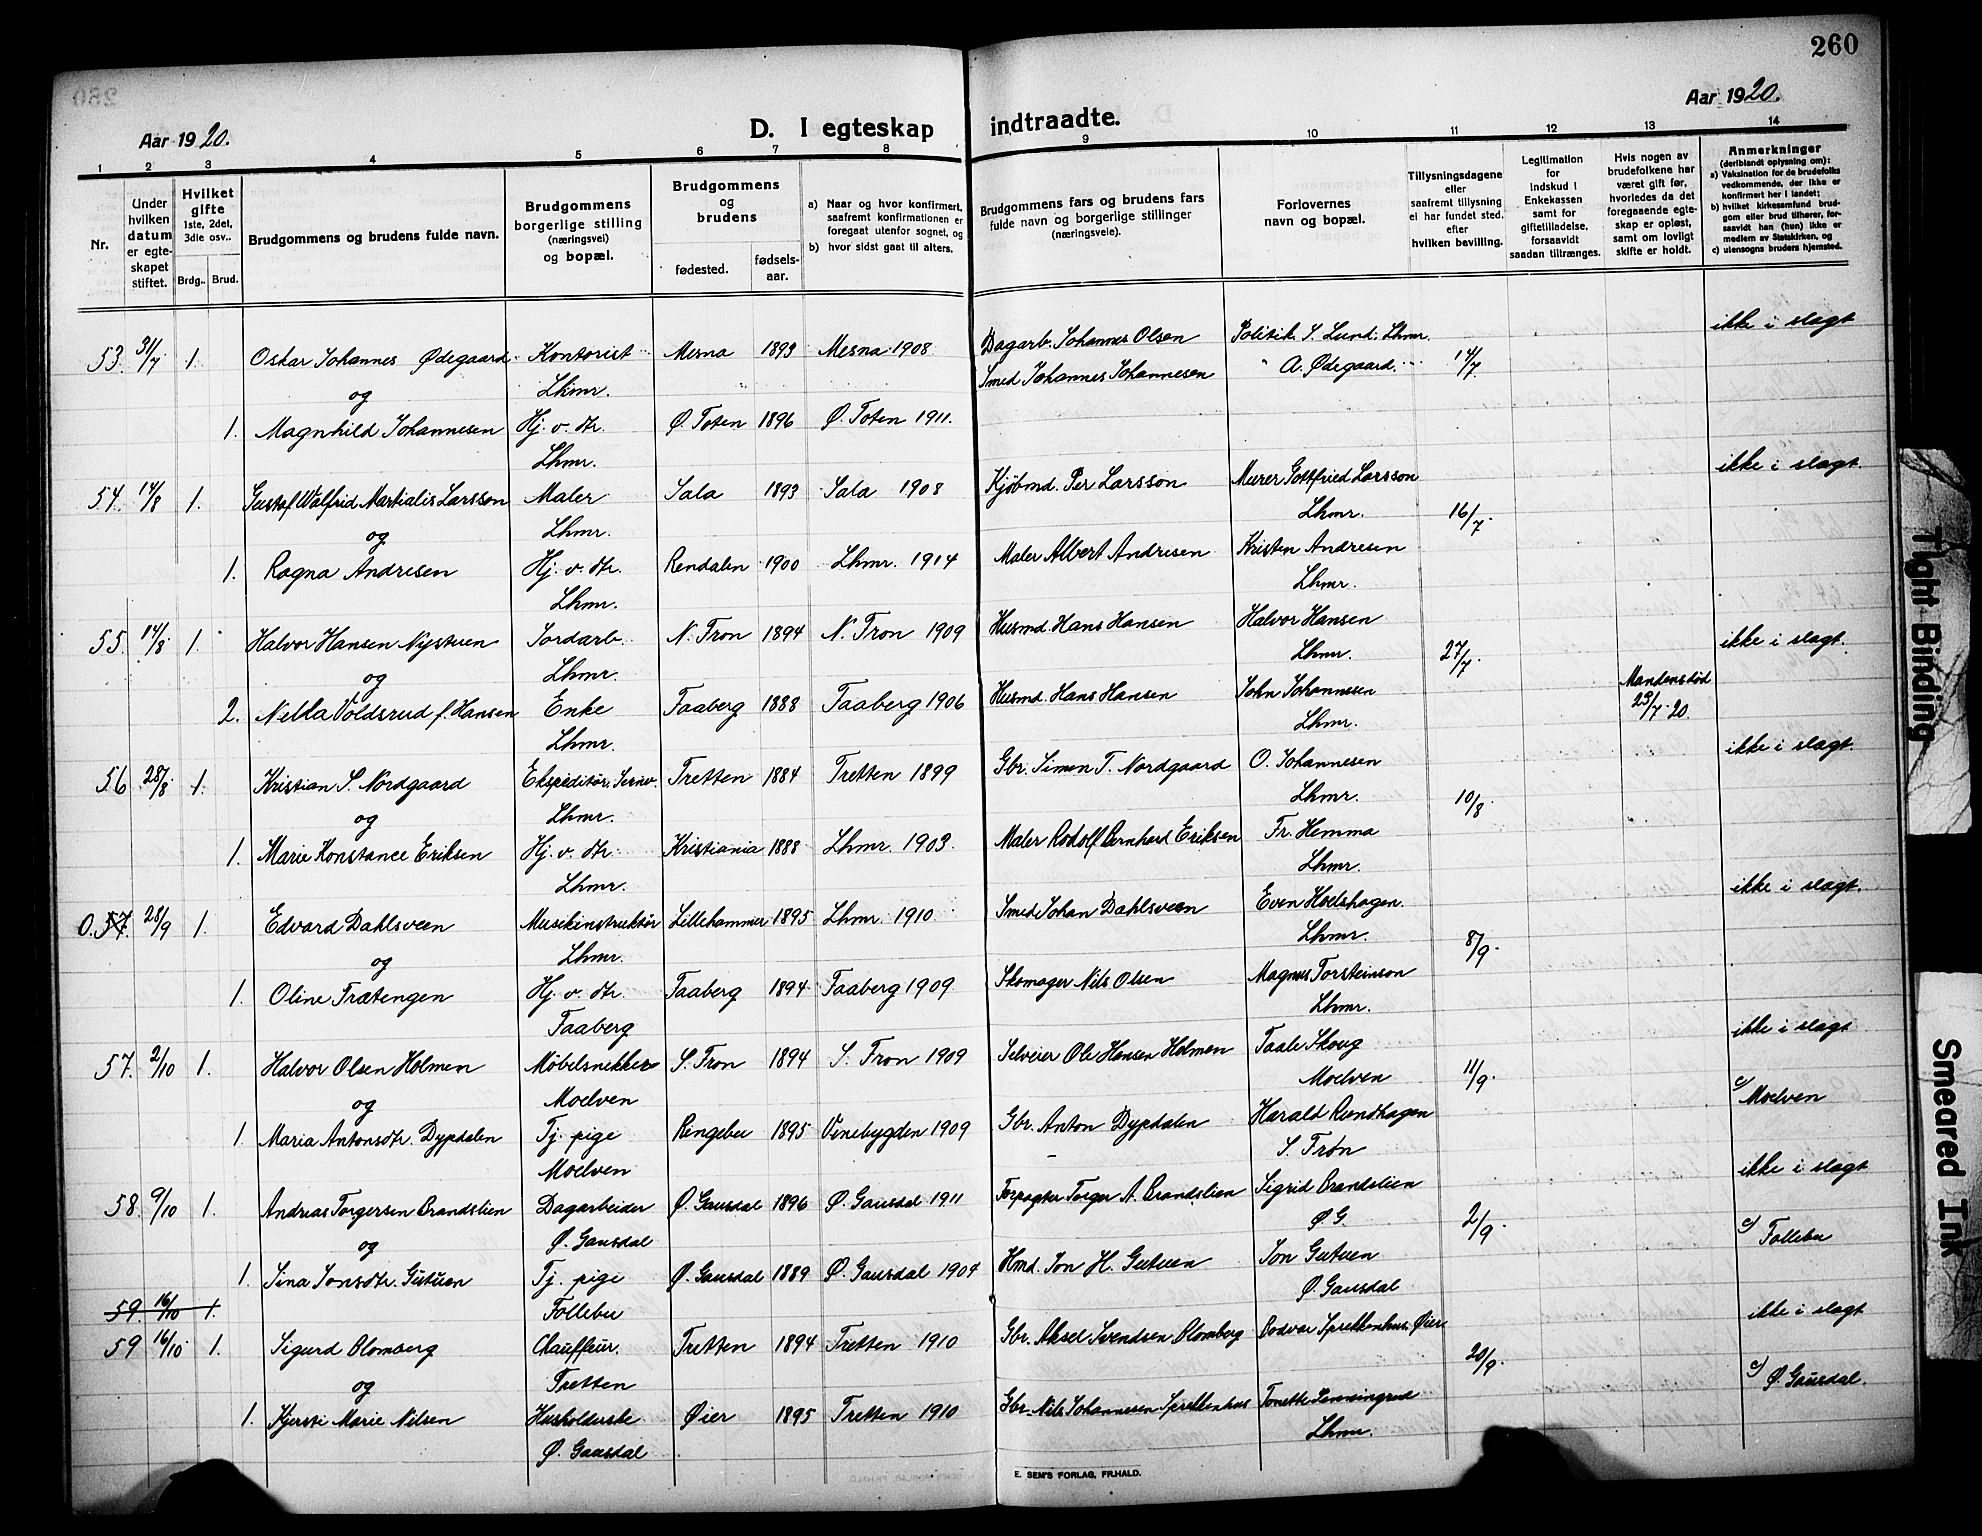 260
Aar 1920.
D. I egteskap
indtraadte.
Aar 1920.
1 2 3 4 5 6 7 8 9 10 11 12 13 14
Nr.
Under hvilken datum er egteskapet stiftet.
Hvilket gifte 1ste, 2det, 3die osv..
Brdg.. Brud.
Brudgommens og brudens fulde navn.
Brudgommens borgerlige stilling (næringsvei) og bopæl.
Brudgommens og brudens
fødested.
fødsels-aar.
a) Naar og hvor konfirmert, saafremt konfirmationen er foregaat utenfor sognet, og
b) hvor sidst gaat til alters.
Brudgommens fars og brudens fars fulde navn og borgerlige stillinger (næringsveie).
Forlovernes navn og bopæl.
Tillysningsdagene eller saafremt tillysning ei har fundet sted, efter hvilken bevilling.
Legitimation for indskud i Enkekassen samt for giftetilladelse, forsaavidt saadan tiltrænges.
Hvis nogen av brudefolkene har været gift før, hvorledes da det foregaaende egteskap er opløst, samt om lovligt skifte er holdt.
Anmerkninger (deriblandt oplysning om): a) Vaksination for de brudefolks vedkommende, der ikke er konfirmert her i landet; b) hvilket kirkesamfund brudgom eller brud tilhører, forsaavidt han (hun) ikke er medlem av Statskirken, og c) utensogns bruders hjemsted.
53. 31/7 1. Oskar Johannes Ødegaard Kontorist Mesna 1893 Mesna 1908 Dagarb. Johannes Olsen Politik. S. Lund. Lhmr. ikke i slegt
Lhmr. Smed Johannes Johannesen " A. Ødegaard. 14/7
og
1. Magnhild Johannesen Hj. v. dtr. Ø. Toten 1896 Ø. Toten 1911.
Lhmr.
54. 14/8 1. Gustaf Walfrid Martialis Larsson Maler Sala 1893 Sala 1908 Kjøbmd. Per Larsson Murer Gottfried Larsson ikke i slegt.
Lhmr. Lhmr. 16/7.
og
1. Ragna Andresen Hj. v. dtr. Rendalen 1900 Lhmr. 1914 Maler Albert Andresen Kristen Andresen
Lhmr. Lhmr.
55. 14/8 1. Halvor Hansen Nystuen Jordarb. N. Fron 1894 N. Fron 1909 Husmd. Hans Hansen Halvor Hansen ikke i slegt.
Lhmr. Lhmr. 27/7.
og
2. Voldsrud f. Hansen Enke Faaberg 1888 Faaberg 1906 Husmd. Hans Hansen John Johannesen Mandens død
Lhmr. Lhmr. 23/7 20.
56 28/8. 1. Kristian S. Nordgaard Ekspeditør. Tretten 1884 Tretten 1899 Gbr. Simen T. Nordgaard O. Johannesen ikke i slegt.
Lhmr. Lhmr. 10/8.
og
1. Marie Konstance Eriksen Hj. v. dtr. Kristiania 1888 Lhmr. 1903. Maler Rodolf Bernhard Eriksen Fr. Hemma
Lhmr. Lhmr.
O.57. 28/9 1. Edvard Dahlsveen Musikinstruktør Lillehammer 1895 Lhmr. 1910 Smed Johan Dahlsveen Even Hoelshagen ikke i slegt.
Lhmr. Lhmr. 8/9.
og
1. Oline Trætengen Hj. v. dtr. Faaberg 1894 Faaberg 1909. Skomager Nils Olsen Magnus Torsteinson
Faaberg Lhmr.
57. 2/10 1. Halvor Olsen Holmen Møbelsnekker S. Fron 1894 S. Fron 1909 Selveier Ole Hansen Holmen Taale Skoug ikke i slegt
Moelven Moelven 11/9. c) Moelven
og
1. Maria Antonsdtr. Dypdalen Tj. pige Ringebu 1895 Venebygden 1909 Gbr. Anton Dypdalen Harald Rundhagen
Moelven S. Fron
58. 9/10 1. Andreas Torgersen Brandslien Dagarbeider Ø. Gausdal 1896 Ø. Gausdal 1911 Forpagter Torger A. Brandslien Sigrid Brandslien ikke i slegt
Ø. Gausdal Ø. G. 2/9 c) Follebu
og
1. Sina Jonsdtr. Gutuen Tj. pige Ø. Gausdal 1889 Ø. Gausdal 1904 Hmd. Jon H. Gutuen Jon Gutuen
Follebu Ø. Gausdal
59. 16/10 1.
59 16/10. 1. Sigurd Blomberg Chauffeur. Tretten 1894 Tretten 1910 Gbr. Aksel Svendsen Blomberg Bodvar Sprekkenhus, Øier ikke i slegt
Tretten 20/9. c) Ø. Gausdal.
og
1. Kjersti Marie Nilsen Husholderske Øier 1895 Tretten 1910 Gbr. Nils Johannesen Sprekkenhus Tonette
Ø. Gausdal Lhmr.
E. SEM'S FORLAG, FR.HALD.
Tight Binding
Smeared Ink